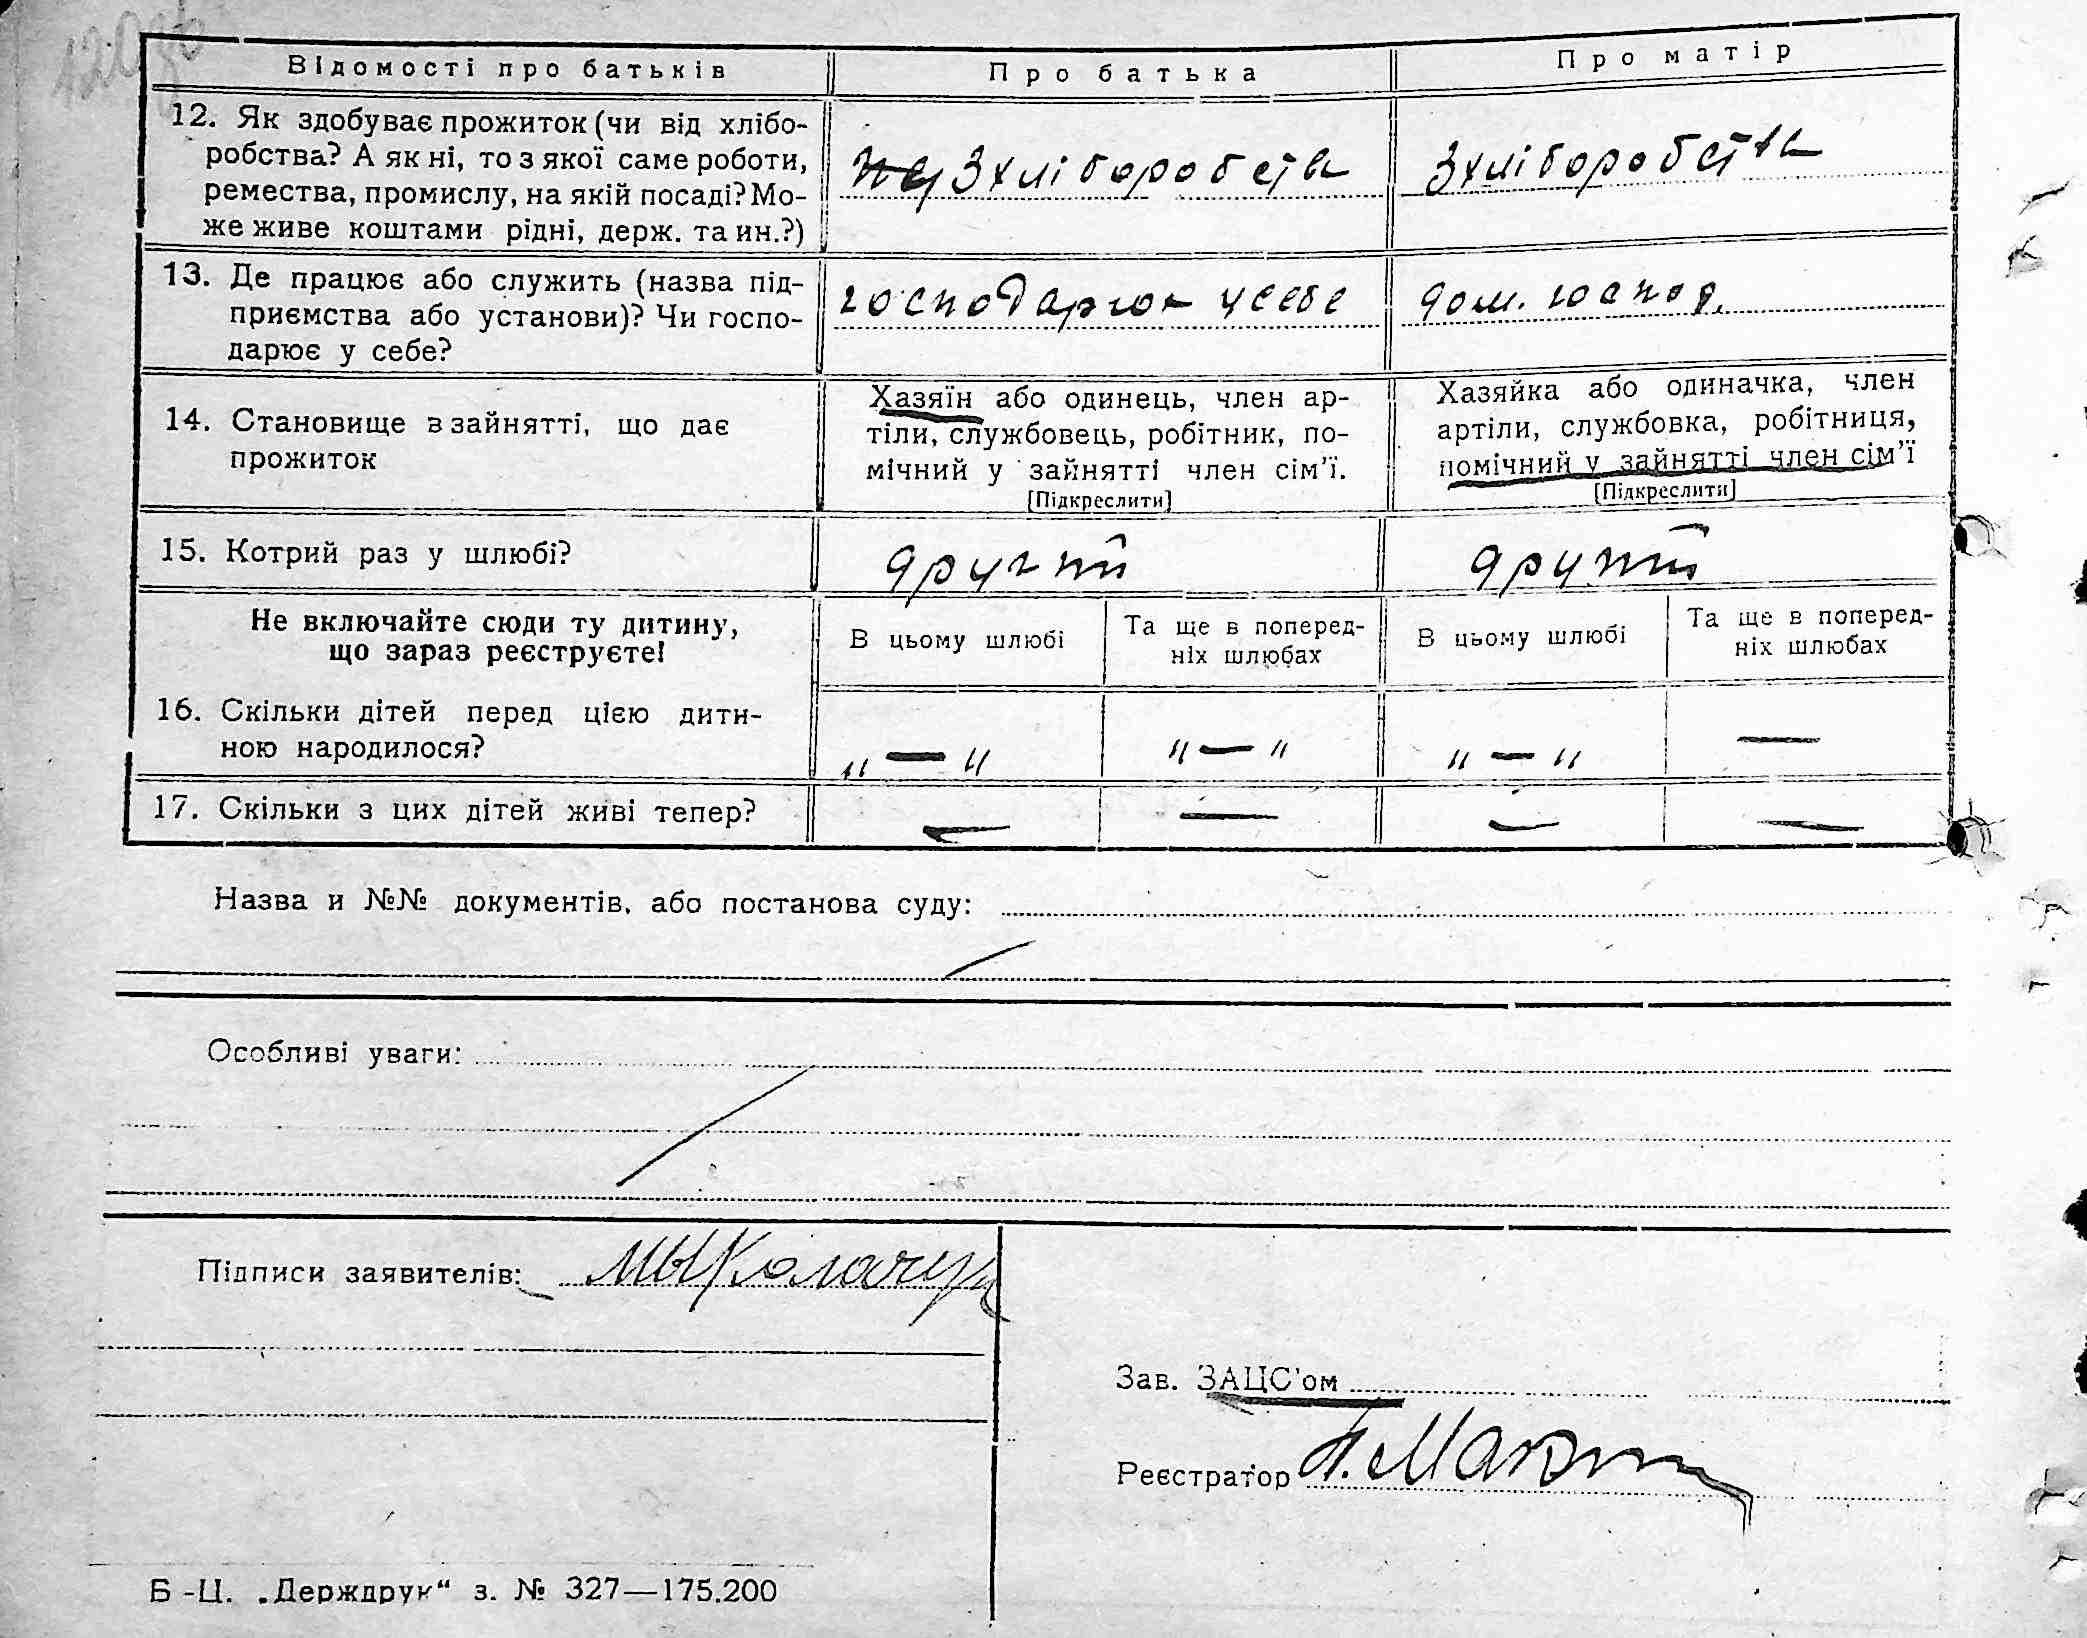 Відомості про батьків
Про батька
Про матір
12. Як здобуває прожиток (чи від хлібо-
робства? А як ні, то з якої саме роботи,
ремества, промислу, на якій посаді? Мо-
же живе коштами рідні, держ. та ин.?)
з хліборобства
з хліборобства
13. Де працює або служить (назва під-
приємства або установи)? Чи госпо-
дарює у себе?
господарюк у себе
дом. господ.
14. Становище в зайнятті, що дає
прожиток
Хазяїн або одинець, член ар-
тіли, службовець, робітник, по-
мічний у зайнятті член сім'ї.
[Підкреслити]
Хазяйка або одиначка, член
артіли, службовка, робітниця,
помічний у зайнятті член сім'ї
[Підкреслити]
15. Котрий раз у шлюбі?
другий
другий
Не включайте сюди ту дитину,
що зараз реєструєте!
В цьому шлюбі
Та ще в поперед-
ніх шлюбах
В цьому шлюбі
Та ще в поперед-
ніх шлюбах
16. Скільки дітей перед цією дити-
ною народилося?
„ — “
" — "
" — "
—
17. Скільки з цих дітей живі тепер?
—
—
—
—
Назва и №№ документів, або постанова суду:
Особливі уваги:
Підписи заявителів:
Зав. ЗАЦС'ом
Реєстратор
Б-Ц. „Держдрук“ з. № 327—175.200